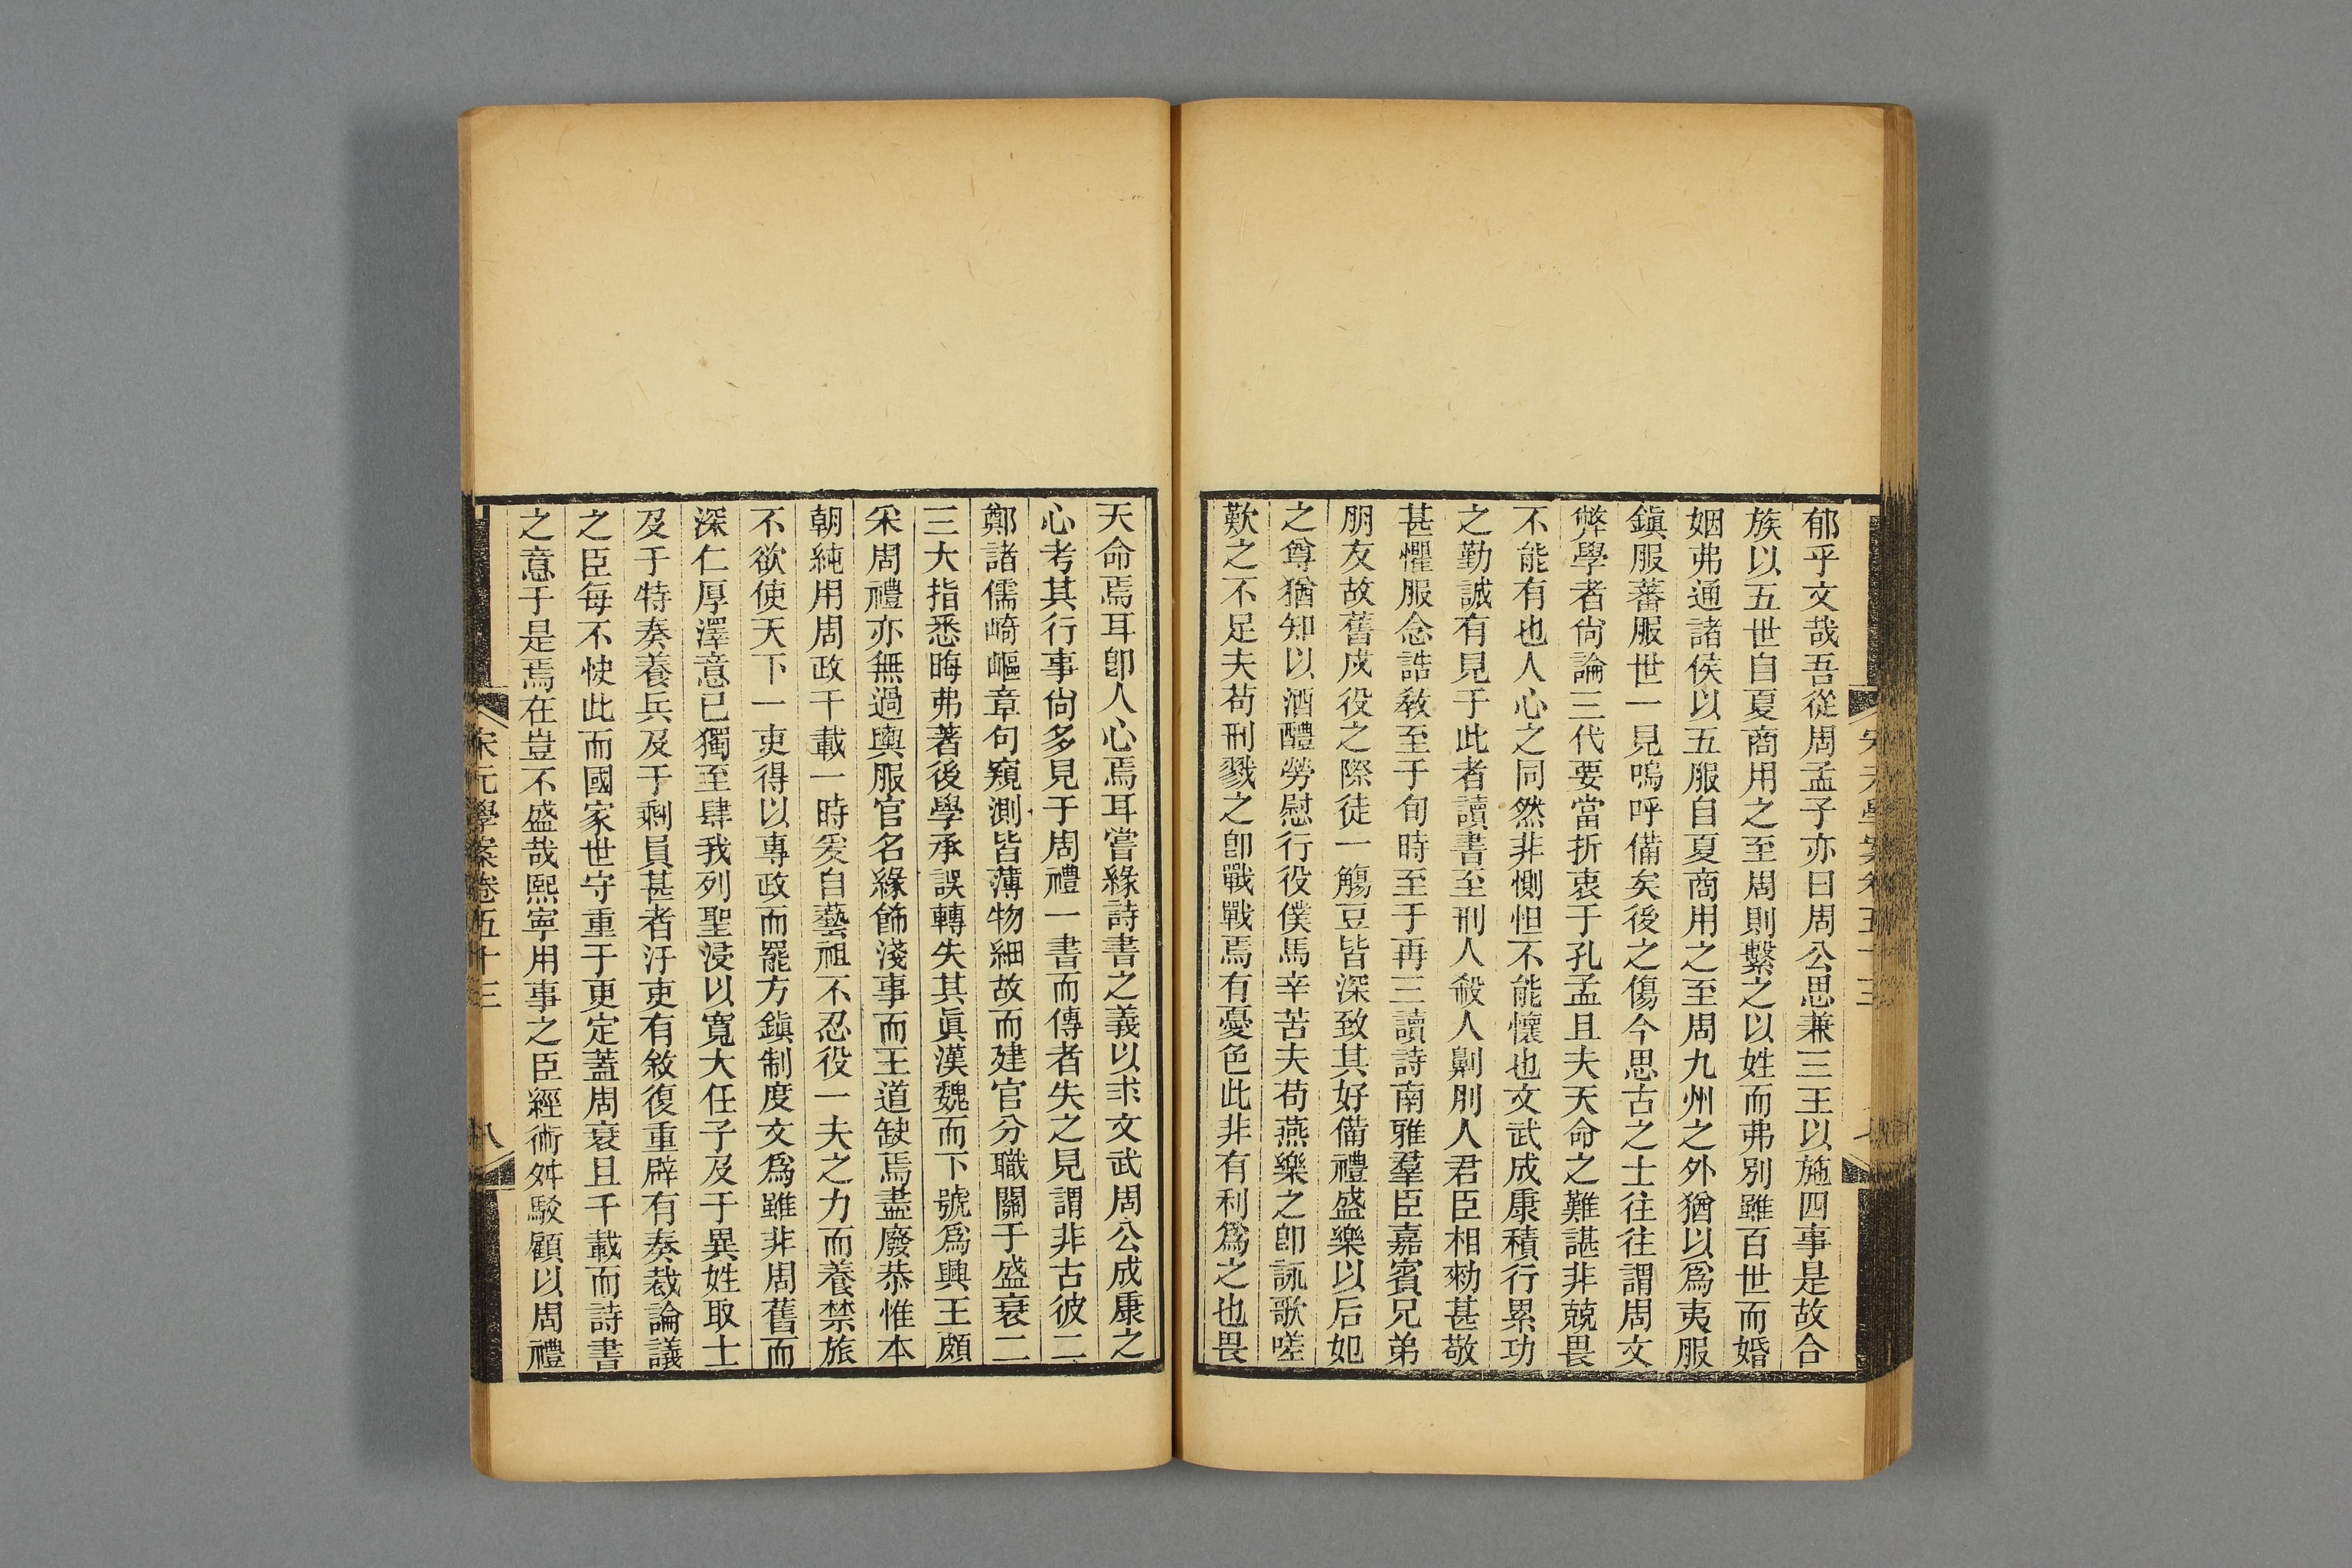 郁乎文哉吾從周孟子亦曰周公思兼三王以施四事是故合
族以五世自夏商用之至周則繫之以姓而弗別雖百世而婚
姻弗通諸侯以五服自夏商用之至周九州之外猶以爲夷服
鎭服蕃服世一見嗚呼備矣後之傷今思古之士往往謂周文
弊學者尙論三代要當折衷于孔孟且夫天命之難諶非兢畏
不能有也人心之同然非惻怛不能懷也文武成康積行累功
之勤誠有見于此者讀書至刑人殺人劓刖人君臣相勑甚敬
甚懼服念誥敎至于旬時至于再三讀詩南雅羣臣嘉賓兄弟
朋友故舊戍役之際徒一觴豆皆深致其好備禮盛樂以后妃
之尊猶知以酒醴勞慰行役僕馬辛苦夫苟燕樂之卽詠歌嗟
歎之不足夫苟刑戮之卽戰戰焉有憂色此非有利爲之也畏
天命焉耳卽人心焉耳嘗緣詩書之義以求文武周公成康之
心考其行事尙多見于周禮一書而傳者失之見謂非古彼二
鄭諸儒崎嶇章句窺測皆薄物細故而建官分職關于盛衰二
三大指悉晦弗著後學承誤轉失其眞漢魏而下號爲興王頗
采周禮亦無過輿服官名緣飾淺事而王道缺焉盡廢恭惟本
朝純用周政千載一時爰自藝祖不忍役一夫之力而養禁旅
不欲使天下一吏得以專政而罷方鎭制度文爲雖非周舊而
深仁厚澤意已獨至肆我列聖浸以寬大任子及于異姓取士
及于特奏養兵及于剩員甚者汙吏有敘復重辟有奏裁論議
之臣每不快此而國家世守重于更定蓋周衰且千載而詩書
之意于是焉在豈不盛哉熙寧用事之臣經術舛駁顧以周禮
宋元學案卷五十三
八